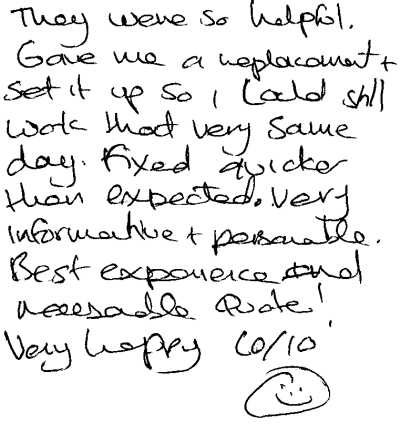 They were so helpful.
Gave me a replacement +
set it up so I could still
work that very same
day. Fixed quicker
than expected. Very
informative + personable.
Best experience and
reasonable quote!
Very happy 10/10!